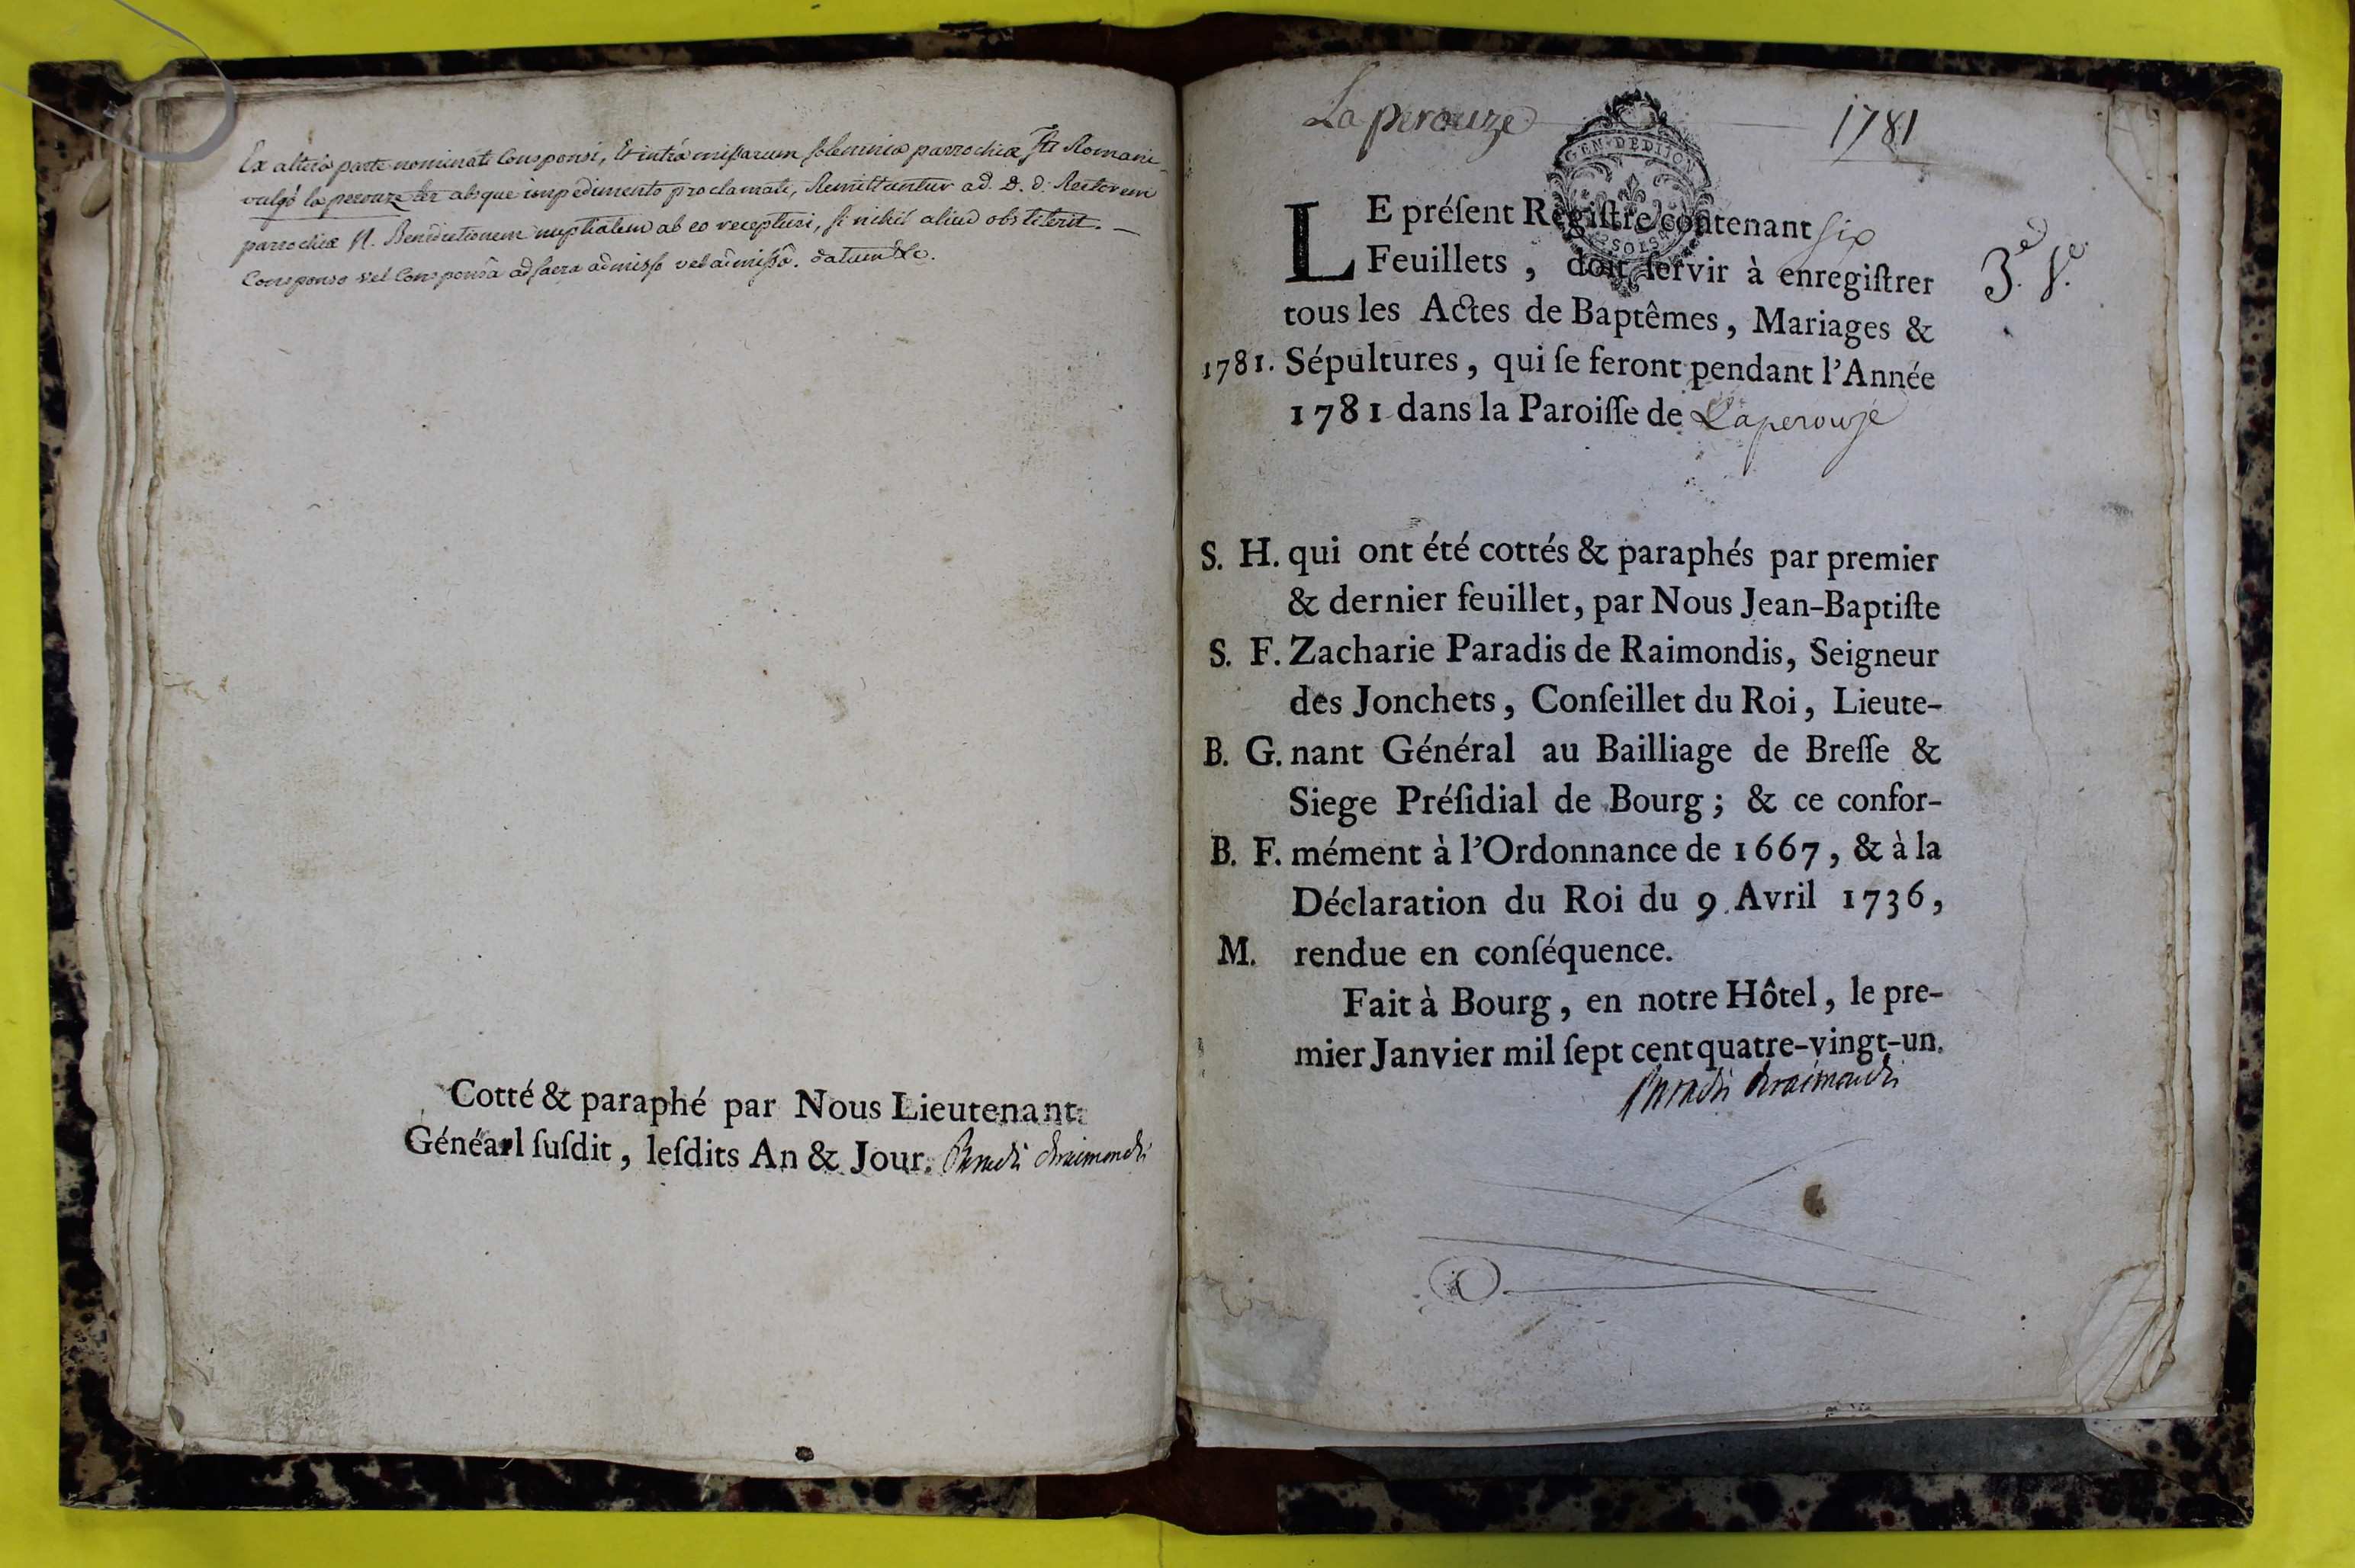 Ex altera parte nominati Consponsi, Et intra missarum solemnia parrochiæ Sti Romani
vulgo la perouze ter absque impedimento proclamati, Remittuntur ad D. D. Rectorem
parrochiæ N. Benedictionem nuptialem ab eo recepturi, si nihil aliud obstiterit. —
Consponso vel Consponsâ ad sacra admisso vel admissâ. datum &c.
Cotté & paraphé par Nous Lieutenant
Généarl ſuſdit, leſdits An & Jour. Paradis deraimondis
La perouze 1781
GEN · DE DIJON
LE préſent Regiſtre contenant six
Feuillets, doit ſervir à enregiſtrer
3e. Ve.
tous les Actes de Baptêmes, Mariages &
1781. Sépultures, qui ſe feront pendant l'Année
1781 dans la Paroiſſe de Laperouse
S. H. qui ont été cottés & paraphés par premier
& dernier feuillet, par Nous Jean-Baptiſte
S. F. Zacharie Paradis de Raimondis, Seigneur
des Jonchets, Conſeillet du Roi, Lieute-
B. G. nant Général au Bailliage de Breſſe &
Siege Préſidial de Bourg; & ce confor-
B. F. mément à l'Ordonnance de 1667, & à la
Déclaration du Roi du 9 Avril 1736,
M. rendue en conſéquence.
Fait à Bourg, en notre Hôtel, le pre-
mier Janvier mil ſept cent quatre-vingt-un.
Paradis deraimondis